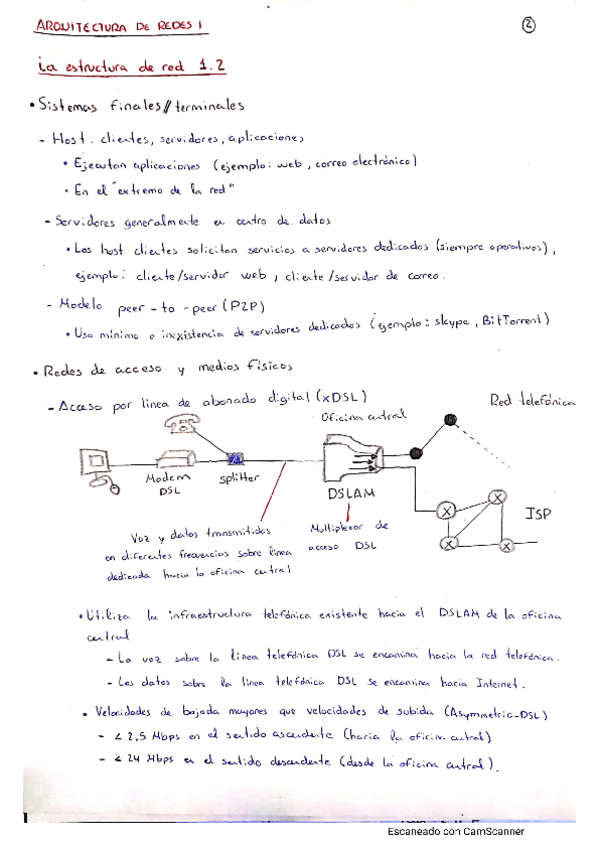 ARQUITECTURA DE REDES I
2
La estructura de red 1.2
• Sistemas finales // terminales
- Host. clientes, servidores, aplicaciones
• Ejecutan aplicaciones (ejemplo: web, correo electrónico)
• En el "extremo de la red"
- Servidores generalmente en centro de datos
• Los host clientes solicitan servicios a servidores dedicados (siempre operativos),
ejemplo: cliente/servidor web, cliente/servidor de correo.
- Modelo peer-to-peer (P2P)
• Uso mínimo o inexistencia de servidores dedicados (ejemplo: skype, BitTorrent)
• Redes de acceso y medios físicos
- Acceso por línea de abonado digital (xDSL)
Oficina central
Red telefónica
Modem
DSL
splitter
DSLAM
X
X
X
X
ISP
Voz y datos transmitidos
en diferentes frecuencias sobre línea
dedicada hacia la oficina central
Multiplexor de
acceso DSL
• Utiliza la infraestructura telefónica existente hacia el DSLAM de la oficina
central
- La voz sobre la línea telefónica DSL se encamina hacia la red telefónica.
- Los datos sobre la línea telefónica DSL se encamina hacia Internet.
• Velocidades de bajada mayores que velocidades de subida (Asymmetric-DSL)
- < 2,5 Mbps en el sentido ascendente (hacia la oficina central)
- < 24 Mbps en el sentido descendente (desde la oficina central).
Escaneado con CamScanner